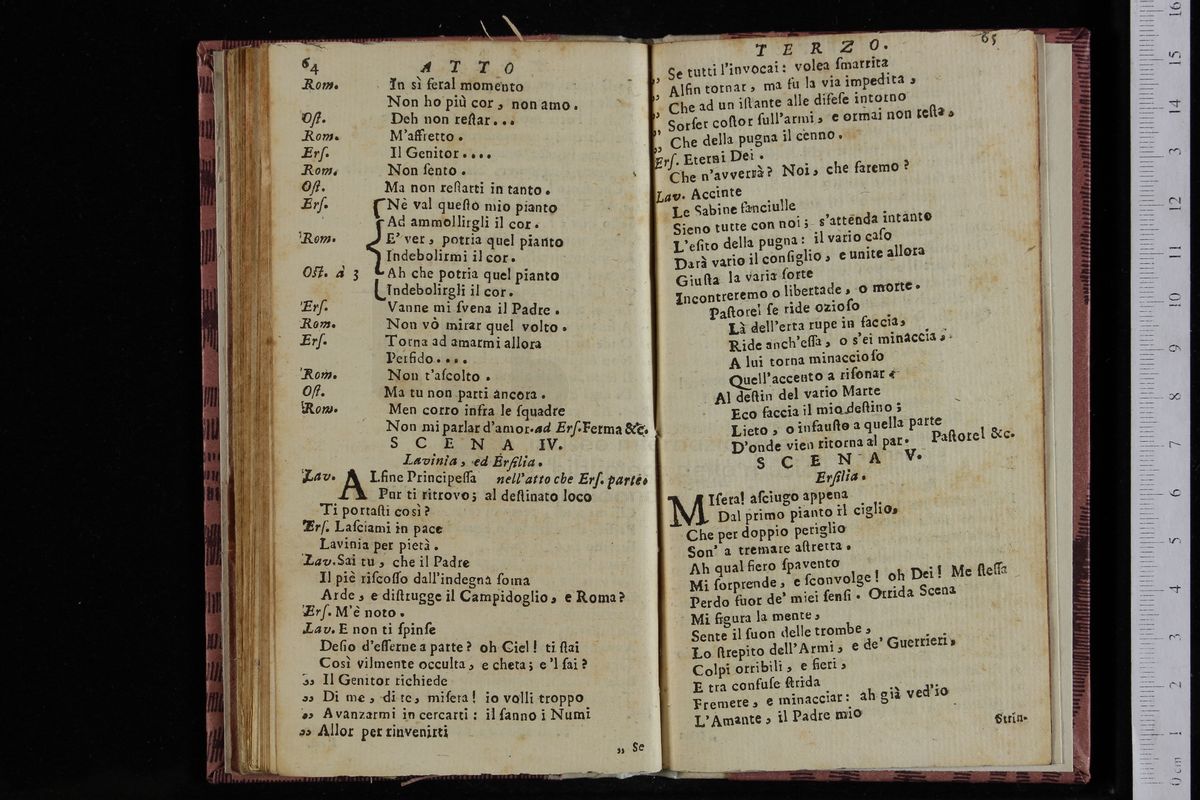 64
ATTO
Rom. In sì feral momento
Non ho più cor, non amo.
Oſt. Deh non reſtar...
Rom. M'affretto.
Erſ. Il Genitor....
Rom. Non ſento.
Oſt. Ma non reſtarti in tanto.
Erſ. Nè val queſto mio pianto
Ad ammollirgli il cor.
Rom. E' ver, potria quel pianto
Indebolirmi il cor.
Oſt. à 3 Ah che potria quel pianto
Indebolirgli il cor.
Erſ. Vanne mi ſvena il Padre.
Rom. Non vò mirar quel volto.
Erſ. Torna ad amarmi allora
Perfido....
Rom. Non t'aſcolto.
Oſt. Ma tu non parti ancora.
Rom. Men corro infra le ſquadre
Non mi parlar d'amor. ad Erſ. Ferma &c.
SCENA IV.
Lavinia, ed Erſilia.
Lav. ALfine Principeſſa nell'atto che Erſ. parte.
Pur ti ritrovo; al deſtinato loco
Ti portaſti così?
Erſ. Laſciami in pace
Lavinia per pietà.
Lav. Sai tu, che il Padre
Il piè riſcoſſo dall'indegna ſoma
Arde, e diſtrugge il Campidoglio, e Roma?
Erſ. M'è noto.
Lav. E non ti ſpinſe
Deſio d'eſſerne a parte? oh Ciel! ti ſtai
Così vilmente occulta, e cheta; e 'l ſai?
„ Il Genitor richiede
„ Di me, di te, miſera! io volli troppo
„ Avanzarmi in cercarti: il ſanno i Numi
„ Allor per rinvenirti
„ Se
TERZO.
65
„ Se tutti l'invocai: volea ſmarrita
„ Alfin tornar, ma fu la via impedita,
„ Che ad un iſtante alle difeſe intorno
„ Sorſer coſtor ſull'armi, e ormai non reſta,
„ Che della pugna il cenno.
Erſ. Eterni Dei.
Che n'avverrà? Noi, che faremo?
Lav. Accinte
Le Sabine fanciulle
Sieno tutte con noi; s'attenda intanto
L'eſito della pugna: il vario caſo
Darà vario il conſiglio, e unite allora
Giuſta la varia ſorte
Incontreremo o libertade, o morte.
Paſtorel ſe ride ozioſo
Là dell'erta rupe in faccia,
Ride anch'eſſa, o s'ei minaccia,
A lui torna minaccioſo
Quell'accento a riſonar.
Al deſtin del vario Marte
Eco faccia il mio deſtino;
Lieto, o infauſto a quella parte
D'onde vien ritorna al par. Paſtorel &c.
SCENA V.
Erſilia.
MIſera! aſciugo appena
Dal primo pianto il ciglio,
Che per doppio periglio
Son' a tremare aſtretta.
Ah qual fiero ſpavento
Mi ſorprende, e ſconvolge! oh Dei! Me ſteſſa
Perdo fuor de' miei ſenſi. Orrida Scena
Mi figura la mente,
Sente il ſuon delle trombe,
Lo ſtrepito dell'Armi, e de' Guerrieri,
Colpi orribili, e fieri,
E tra confuſe ſtrida
Fremere, e minacciar: ah già ved'io
L'Amante, il Padre mio
Strin-
16
15
14
13
12
11
10
9
8
7
6
5
4
3
2
1
0 cm